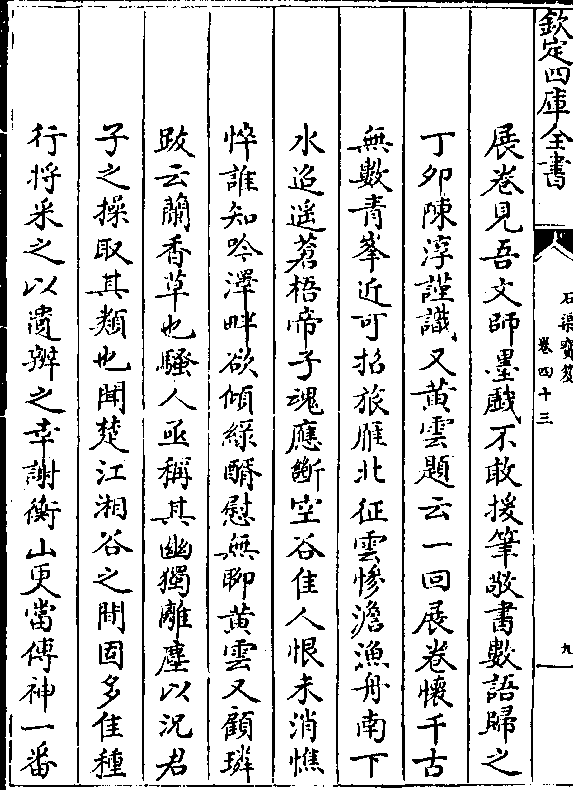 欽定四庫全書
石渠寶笈
卷四十三
九
展卷見吾文師墨戲不敢援筆敬書數語歸之
丁卯陳淳謹識又黃雲題云一回展卷懷千古
無數青峯近可招旅雁北征雲慘澹漁舟南下
水迢遥蒼梧帝子魂應斷空谷佳人恨未消憔
悴誰知吟澤畔欲傾緑醑慰無聊黃雲又顧璘
跋云蘭香草也騷人亟稱其幽獨離塵以況君
子之操取其類也聞楚江湘谷之間固多佳種
行將采之以遺辨之幸謝衡山更當傳神一番